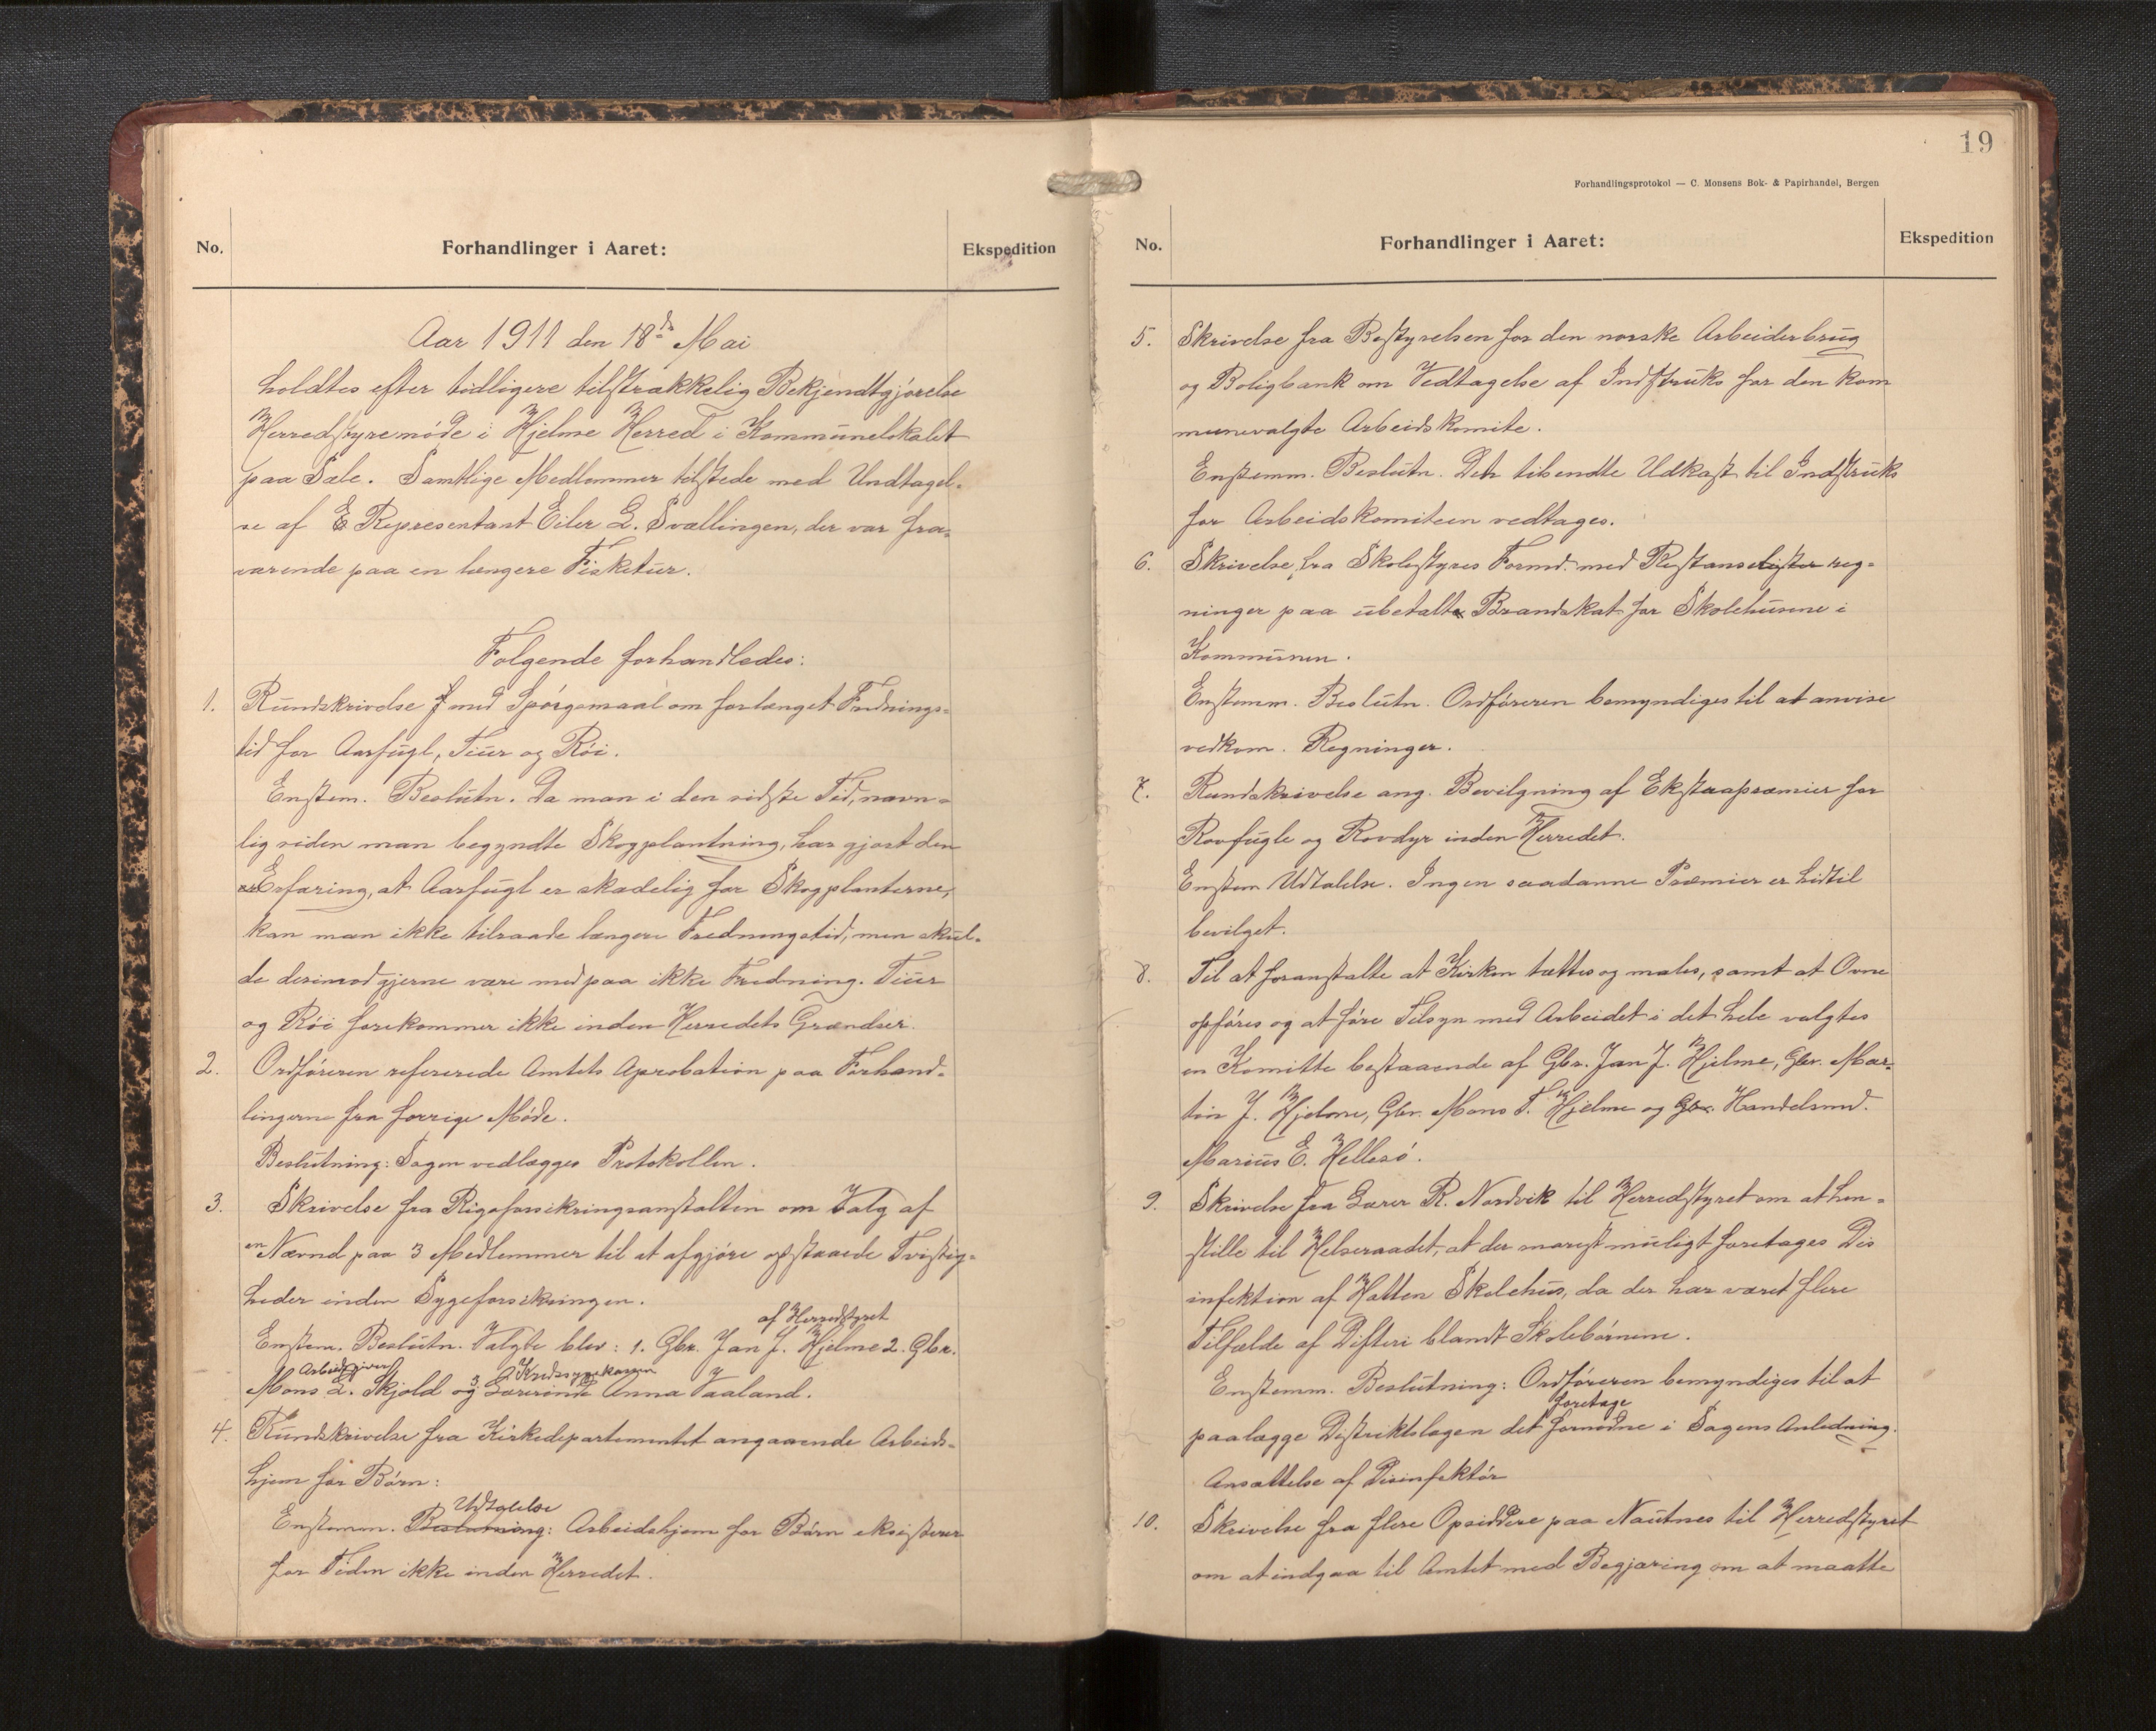 No.
Forhandlinger i Aaret:
Ekspedition
Aar 1911 den 18de Mai
holdtes efter tidligere tilstrækkelig Bekjendtgjørelse
Herredstyremøde i Hjelme Herred i Kommunelokalet
paa Sæle. Samtlige Medlemmer tilstede med Undtagel-
se af E Representant Eiler L. Svællingen, der var fra-
værende paa en længere Fisketur.
Følgende forhandledes:
1. Rundskrivelse f med Spørgsmaal om forlænget Frednings-
tid for Aarfugl, Tiur og Røi.
Enstem. Beslutn. Da man i den sidste Tid, navn-
lig siden man begyndte Skogplantning, har gjort den
Erfaring, at Aarfugl er skadelig for Skogplanterne,
kan man ikke tilraade længere Fredningstid, men skul-
de derimod gjerne være med paa ikke Fredning. Tiur
og Røi forekommer ikke inden Herredets Grændser.
2. Ordføreren refererede Amtets Aprobation paa Forhand-
lingerne fra forrige Møde.
Beslutning: Sagen vedlægges Protokollen.
3. Skrivelse fra Rigsforsikringsanstalten om Valg af
en Nævnd paa 3 Medlemmer til at afgjøre opstaaede Tvistig-
heder inden Sygeforsikringen.
af Herredstyret
Enstem. Beslutn. Valgte blev: 1. Gbr. Jan J. Hjelme 2. Gbr.
Arbeidsgiver Kredssygekassen
Mons L. Skjold og 3 Lærerinde Anna Vaaland.
4. Rundskrivelse fra Kirkedepartementet angaaende Arbeids-
hjem for Børn:
Udtalelse
Enstemm. Beslutning: Arbeidshjem for Børn eksisterer
for Tiden ikke inden Herredet.
19
Forhandlingsprotokol — C. Monsens Bok- & Papirhandel, Bergen
No.
Forhandlinger i Aaret:
Ekspedition
5. Skrivelse fra Bestyrelsen for den norske Arbeiderbrug
og Boligbank om Vedtagelse af Instruks for den kom
munevalgte Arbeidskomite.
Enstemm. Beslutn. Det tilsendte Udkast til Indstruks
for Arbeidskomiteen vedtages.
6. Skrivelse fra Skolestyres Formd. med Restanselister reg-
ninger paa ubetalte Brandskat for Skolehusene i
Kommunen.
Enstemm. Beslutn. Ordføreren bemyndiges til at anvise
vedkom. Regninger.
7. Rundskrivelse ang. Bevilgning af Ekstraapræmier for
Rovfugle og Rovdyr inden Herredet.
Enstem Udtalelse. Ingen saadanne Præmier er hidtil
bevilget.
8. Til at foranstalte at Kirken tættes og males, samt at Ovne
opføres og at føre Tilsyn med Arbeidet i det hele valgtes
en Komitte bestaaende af Gbr. Jan J. Hjelme, Gbr. Mar-
tin J. Hjelme, Gbr. Mons T. Hjelme og Gbr. Handelsmd.
Marius E. Hellesø.
9. Skrivelse fra Lærer R. Nordvik til Herredstyret om at hen-
stille til Helseraadet, at der snarest muligt foretages Dis
infektion af Hatten Skolehus, da der har været flere
Tilfælde af Difteri blandt Skolebørnene.
Enstemm. Beslutning: Ordføreren bemyndiges til at
foretage
paalægge Distriktslægen det fornødne i Sagens Anledning.
Ansættelse af Disinfektør
10. Skrivelse fra flere Opsiddere paa Nautnes til Herredstyret
om at indgaa til Amtet med Begjæring om at maatte